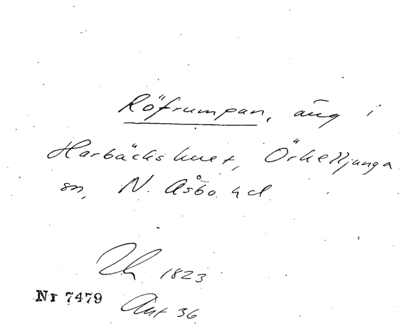 Röfrumpan, äng i
Harbäckshult, Örkelljunga
sn, N. Åsbo hd
1823
Nr 7479
36